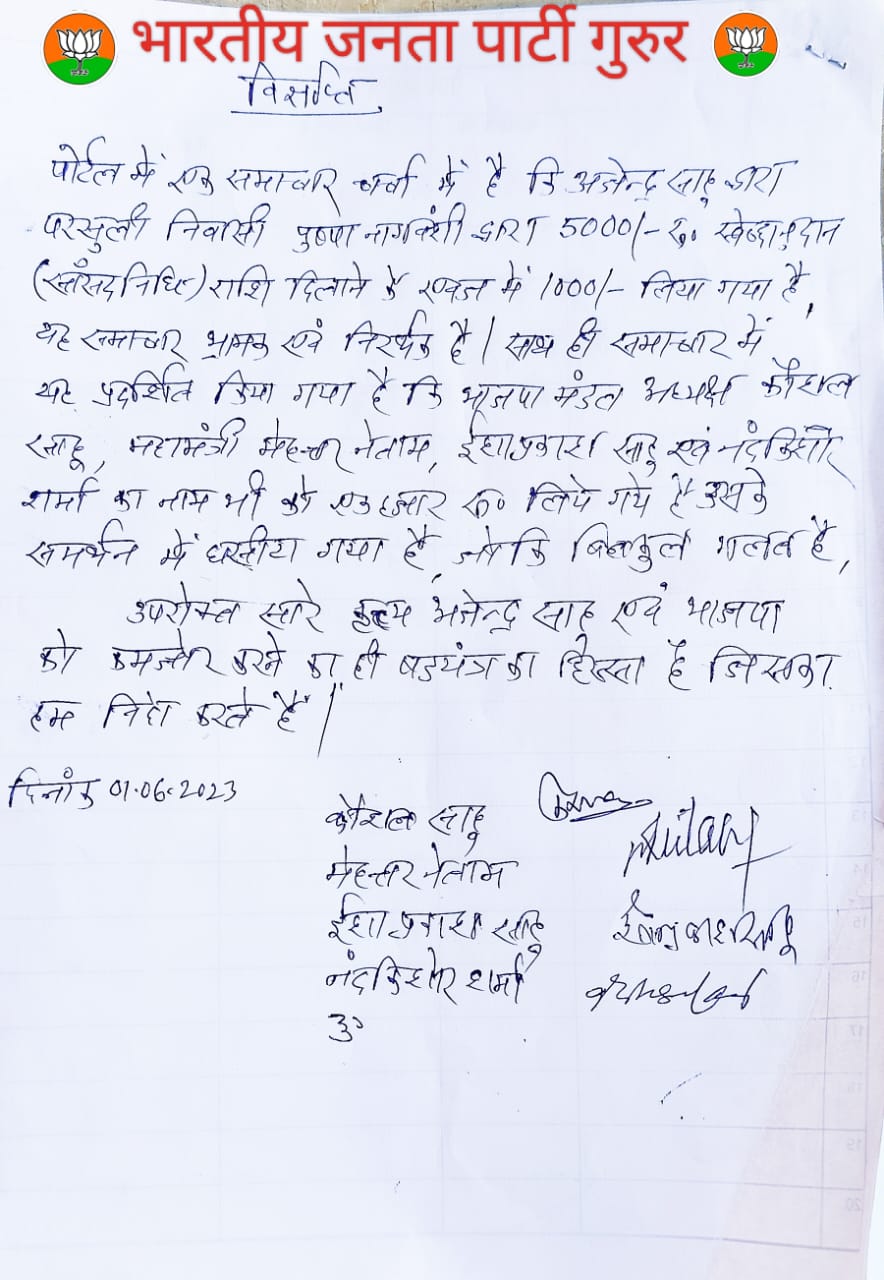 भारतीय जनता पार्टी गुरुर
विज्ञप्ति
पोर्टल में एक समाचार चर्चा में है कि अजेन्द्र साहू द्वारा
परसुली निवासी पुष्पा नागवंशी द्वारा 5000/- रु० स्वेच्छानुदान
(सांसदनिधि) राशि दिलाने के एवज में 1000/- लिया गया है,
यह समाचार भ्रामक एवं निरर्थक है। साथ ही समाचार में
यह प्रदर्शित किया गया है कि भाजपा मंडल अध्यक्ष कौशल
साहू, महामंत्री मेहत्तर नेताम, ईशाप्रकाश साहू एवं नंदकिशोर
शर्मा का नाम भी को एक हजार रु० लिये गये है उसके
समर्थन में घसीटा गया है, जो कि बिलकुल गलत है,
उपरोक्त सारे कृत्य अजेन्द्र साहू एवं भाजपा
को कमजोर करने का ही षडयंत्र का हिस्सा है जिसका
हम निंदा करते है।
दिनांक 01.06.2023
कौशल साहू
मेहत्तर नेताम
ईशाप्रकाश साहू
नंदकिशोर शर्मा